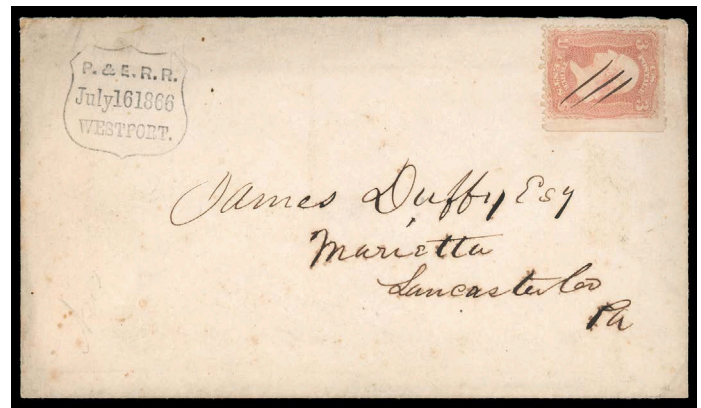 P. & E. R. R.
July 16 1866
WESTPORT.
3 U 3
James Duffy Esq
Marietta
Lancaster Co
Pa